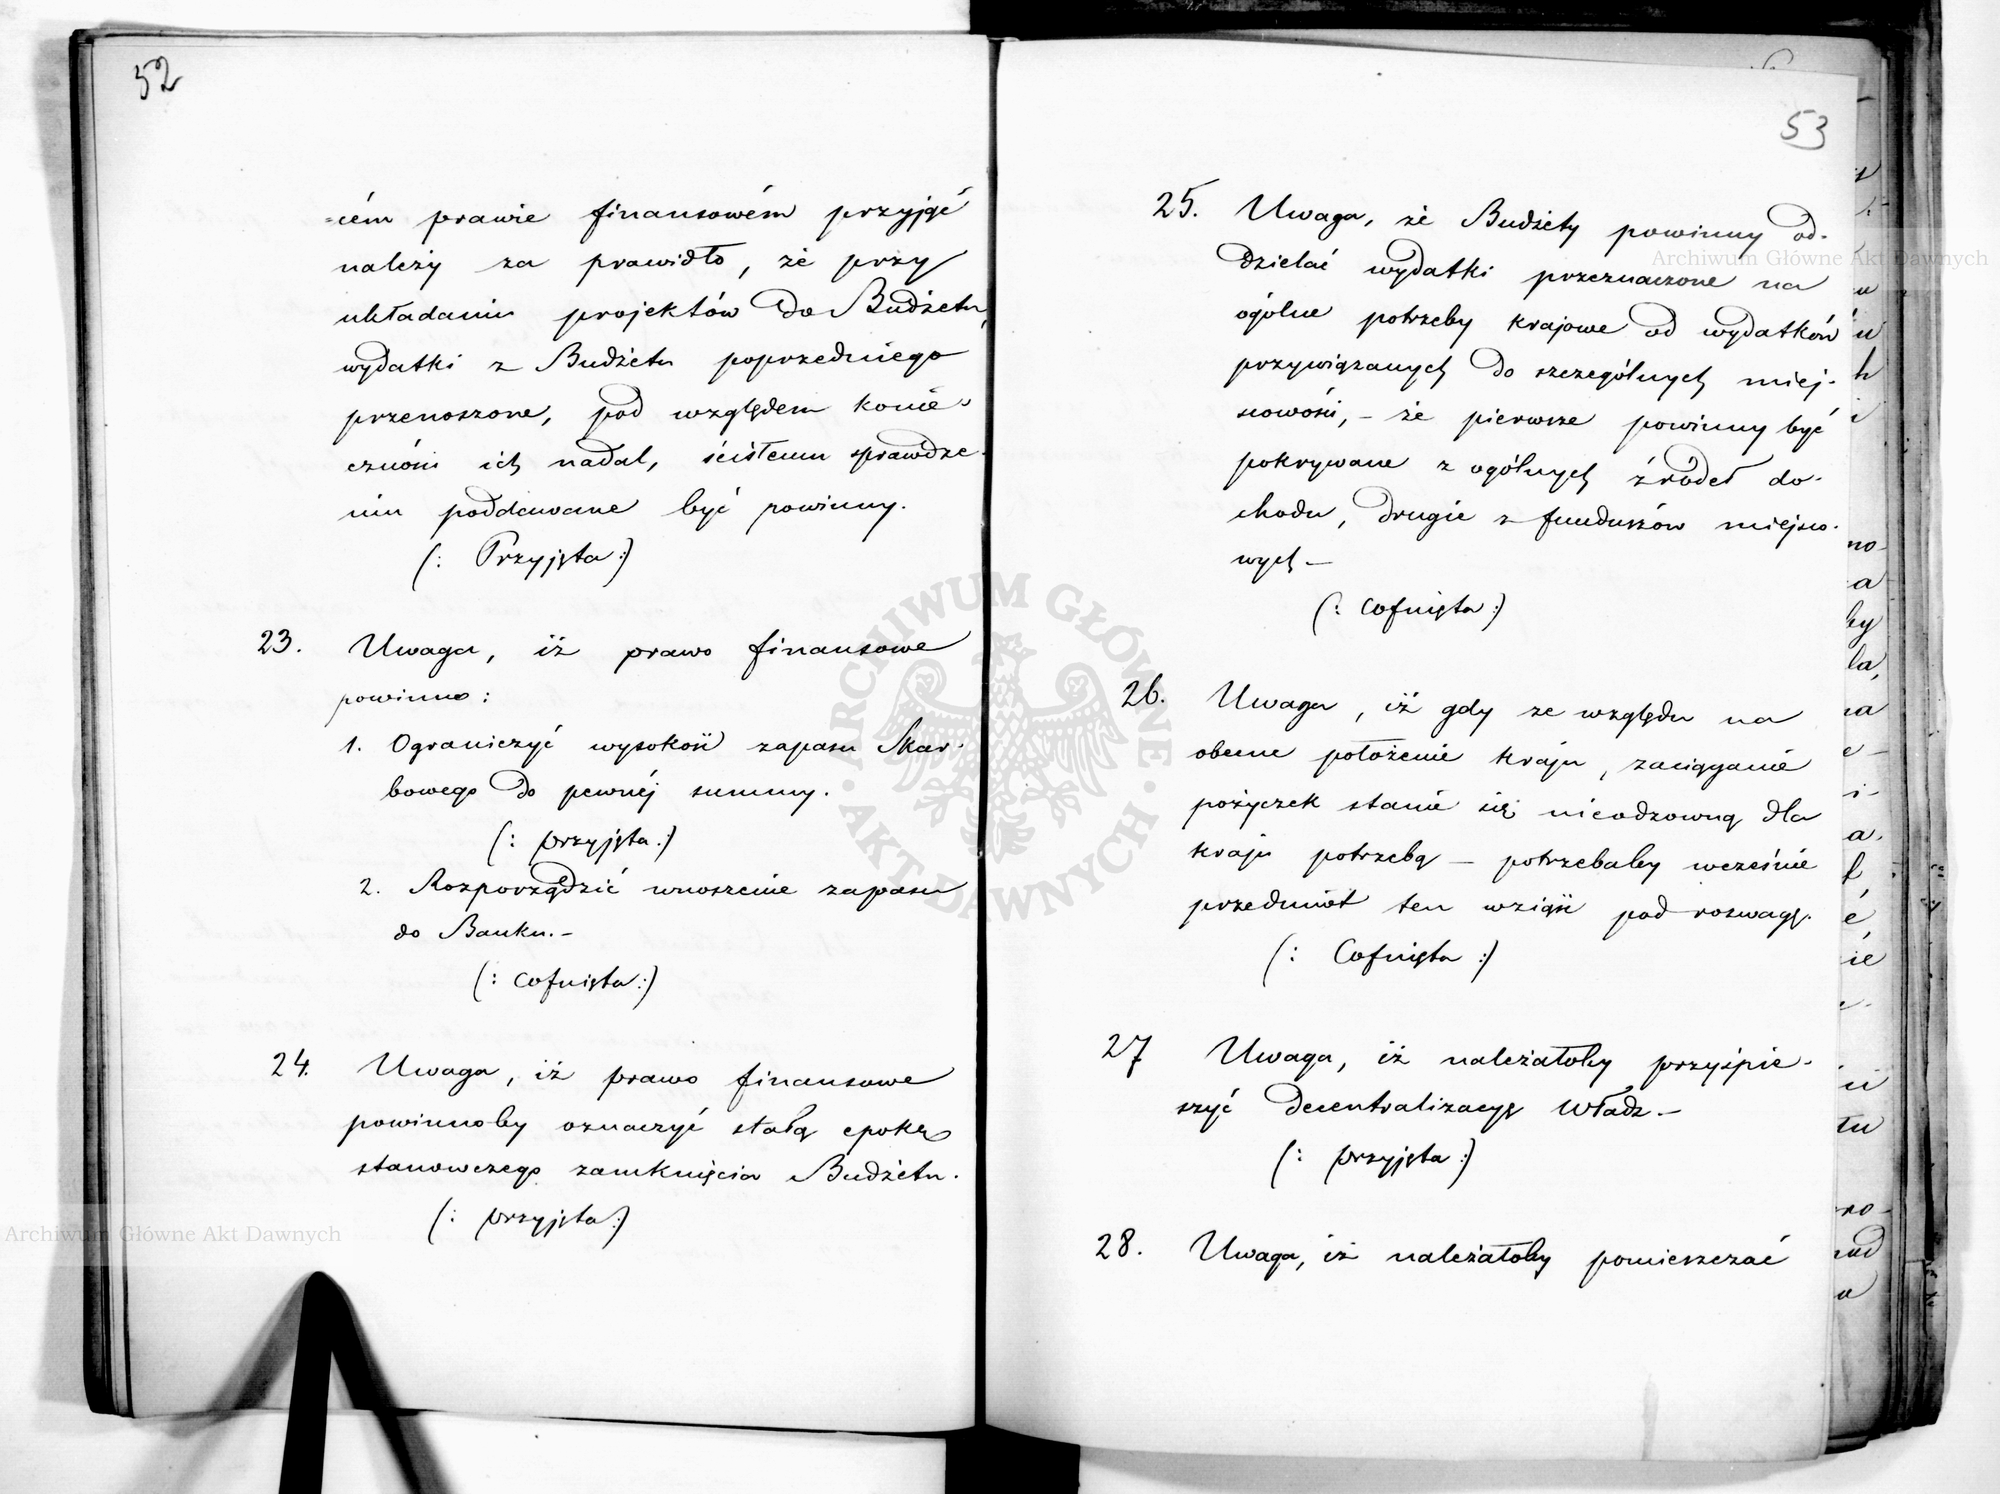 52
=cém prawie finansowém przyjąć
należy za prawidło, że przy
układaniu projektów do Budżetu,
wydatki z Budżetu poprzedniego
przenoszone, pod względem konie-
czności ich nadal, ścisłemu sprawdze-
niu poddawane być powinny.
(: Przyjęta :)
23. Uwaga, iż prawo finansowe
powinno:
1. Ograniczyć wysokość zapasu Skar-
bowego do pewnéj summy.
(: przyjęta :)
2. Rozporządzić wnoszenie zapasu
do Banku. –
(: Cofnięta :)
24. Uwaga, iż prawo finansowe
powinnoby oznaczyć stałą epokę
stanowczego zamknięcia Budżetu.
(: przyjęta :)
53
25. Uwaga, że Budżety powinny od-
dzielać wydatki przeznaczone na
ogólne potrzeby krajowe od wydatków
przywiązanych do szczególnych miej-
scowości, – że pierwsze powinny być
pokrywane z ogólnych źródeł do-
chodu, drugie z funduszów miejsco-
wych –
(: Cofnięta :)
26. Uwaga, iż gdy ze względu na
obecne położenie kraju, zaciąganie
pożyczek stanie się nieodzowną dla
kraju potrzebą – potrzebaby wcześnie
przedmiot ten wziąść pod rozwagę.
(: Cofnięta :)
27 Uwaga, iż należałoby przyśpie-
szyć decentralizacyę Władz –
(: przyjęta :)
28. Uwaga, iż należałoby pomieszczać
ARCHIWUM GŁÓWNE AKT DAWNYCH
Archiwum Główne Akt Dawnych
Archiwum Główne Akt Dawnych